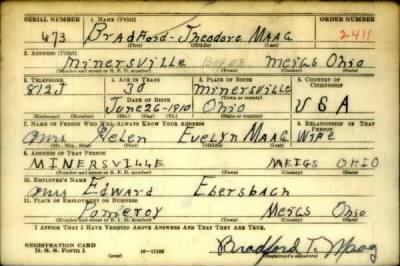 SERIAL NUMBER 1. NAME (Print) ORDER NUMBER
673 Bradford Theodore Maag 2411
(First) (Middle) (Last)
2. ADDRESS (Print)
Minersville Meigs Ohio
(Number and street or R. F. D. number) (Town) (County) (State)
3. TELEPHONE 4. AGE IN YEARS 5. PLACE OF BIRTH 6. COUNTRY OF CITIZENSHIP
812J 30 Minersville
DATE OF BIRTH (Town or county)
June 26-1910 Ohio USA
(Exchange) (Number) (Mo.) (Day) (Yr.) (State or country)
7. NAME OF PERSON WHO WILL ALWAYS KNOW YOUR ADDRESS 8. RELATIONSHIP OF THAT PERSON
Mrs Helen Evelyn Maag Wife
(Mr., Mrs., Miss) (First) (Middle) (Last)
9. ADDRESS OF THAT PERSON
Minersville Meigs Ohio
(Number and street or R. F. D. number) (Town) (County) (State)
10. EMPLOYER'S NAME
Edward Ebersbach
11. PLACE OF EMPLOYMENT OR BUSINESS
Pomeroy Meigs Ohio
(Number and street or R. F. D. number) (Town) (County) (State)
I AFFIRM THAT I HAVE VERIFIED ABOVE ANSWERS AND THAT THEY ARE TRUE.
REGISTRATION CARD
D. S. S. Form 1 16-17105 Bradford T. Maag
(Registrant's signature)